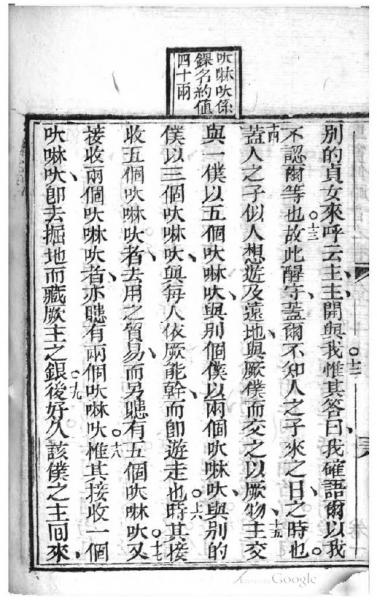 㕭啉㕭係
銀名約值
四十兩
別的貞女來呼云主主開與我惟其答曰我確語爾以我
不認爾等也故此醒守蓋爾不知人之子來之日之時也
蓋人之子似人想遊及遠地與厥僕而交之以厥物主交
與一僕以五個㕭啉㕭與別個僕以兩個㕭啉㕭與別的
僕以三個㕭啉㕭與每人依厥能幹而卽遊走也時其接
收五個㕭啉㕭者去用之貿易而另聽有五個㕭啉㕭又
接收兩個㕭啉㕭者亦聽有兩個㕭啉㕭惟其接收一個
㕭啉㕭卽去掘地而藏厥主之銀後好久該僕之主囘來
十二
十三
十五
十六
十七
十八
十九
Google